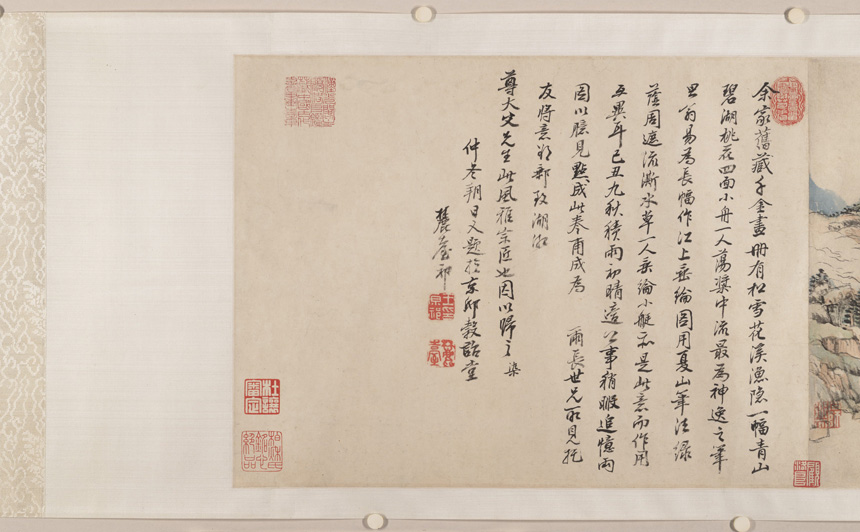 余家舊藏千金畫冊有松雪花溪漁隱一幅青山
碧湖桃花四面小舟一人蕩槳中流最為神逸之筆
思翁易為長幅作江上垂綸圖用夏山筆法綠
蔭周遮流澌水草一人垂綸小艇亦是此意而作用
互異耳己丑九秋積雨初晴適公事稍暇追憶兩
圖以臆見點成此卷甫成為 爾長世兄所見托
友將意 湖
尊大父先生此風雅宗匠也因以歸之 染
仲冬朔日又題於京邸穀詒堂
麓臺祁